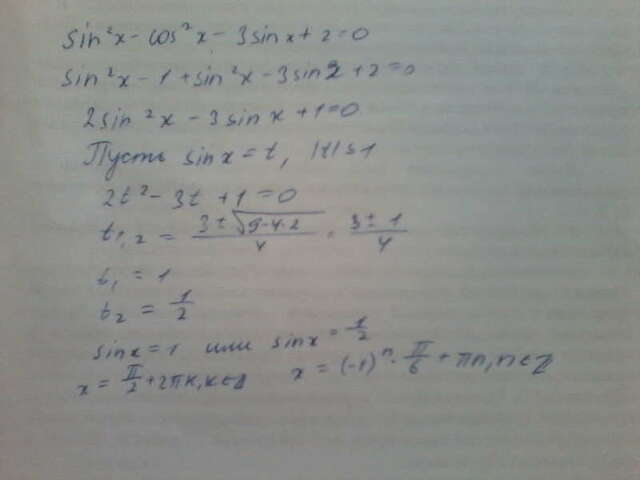 sin²x - cos²x - 3sinx + 2 = 0
sin²x - 1 + sin²x - 3sin2 + 2 = 0
2sin²x - 3sinx + 1 = 0
Пусть sinx = t, |t| ≤ 1
2t² - 3t + 1 = 0
t₁,₂ = (3 ± √(9-4·2))/4 = (3 ± 1)/4
t₁ = 1
t₂ = 1/2
sinx = 1 или sinx = 1/2
x = π/2 + 2πk, k ∈ Z x = (-1)ⁿ · π/6 + πn, n ∈ Z